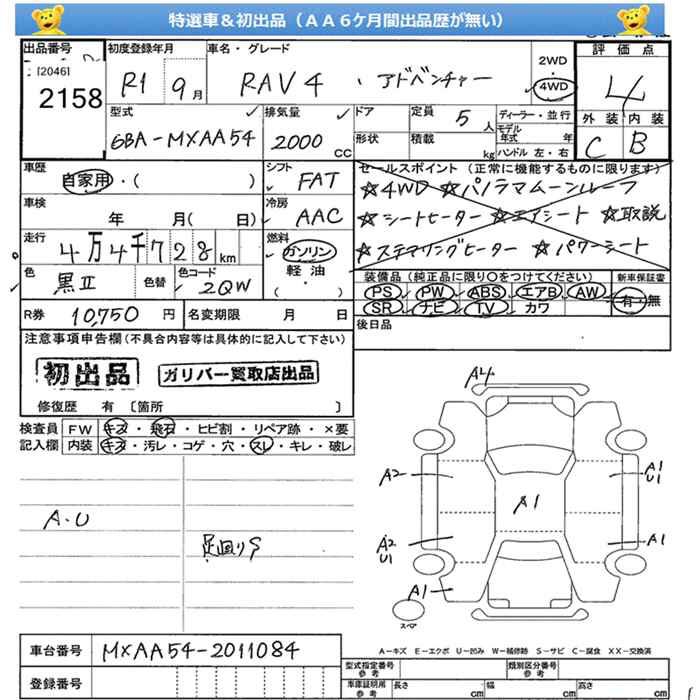 特選車＆初出品（ＡＡ６ケ月間出品歴が無い）
出品番号 初度登録年月 車名・グレード 評価点
[2046]
2158
R1 9月 RAV4 ・ アドベンチャー
2WD
4WD
4
型式 排気量 ドア 定員 5人 ディーラー・並行
外装 内装
6BA-MXAA54 2000cc
形状 積載 kg
モデル年式 年
ハンドル 左・右
C B
車歴 自家用・( )
シフト FAT
セールスポイント（正常に機能するものに限ります）
☆4WD ☆パノラマムーンルーフ
車検 年 月( 日)
冷房 AAC
☆シートヒーター ☆エアシート ☆取説
走行 4万4千728km
燃料 ガソリン
軽油
( )
☆ステアリングヒーター ☆パワーシート
色 黒Ⅱ 色替 色コード 2QW
装備品（純正品に限り○をつけてください） 新車保証書
PS PW ABS エアB AW
SR ナビ TV カワ
有・無
R券 10,750円 名変期限 月 日
後日品
注意事項申告欄（不具合内容等は具体的に記入して下さい）
初出品 ガリバー買取店出品
修復歴 有〔箇所 〕
検査員 FW キズ・飛石・ヒビ割・リペア跡・×要
記入欄 内装 キズ・汚レ・コゲ・穴・スレ・キレ・破レ
A4
A2
A1
U1
A1
A・U
足回りS
A2
U1
A1
A1
スペア
A－キズ E－エクボ U－凹み W－補修跡 S－サビ C－腐食 XX－交換済
車台番号 MXAA54-2011084
登録番号
型式指定番号 参考 類別区分番号 参考
車庫証明用 参考 長さ cm 幅 cm 高さ cm